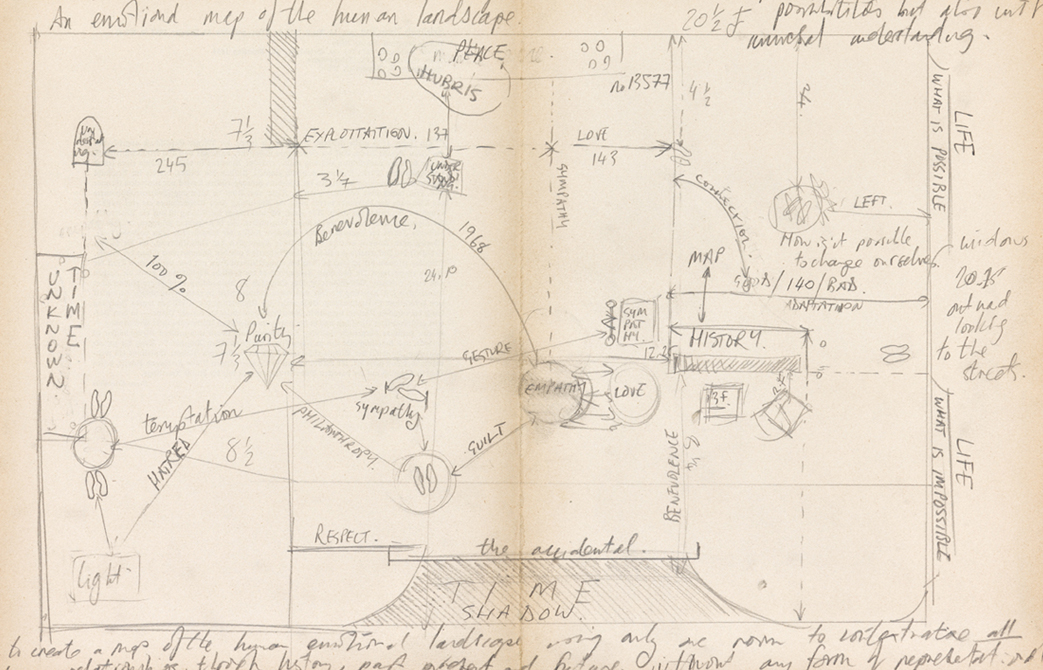 An emotional map of the human landscape.
20 ½ f possibilities but also with
mutual understanding.
PEACE
HUBRIS
no 13577
4 ½
24
7 ½
EXPLOITATION. 137
LOVE
245
143
3 ¼
UNDER
STAND
SYMPATHY
CONNECTION
LEFT.
WHAT IS POSSIBLE
LIFE
Benevolence.
1968
How is it possible
to change ourselves.
windows
100 %
24.10
MAP
GOOD / 140 / BAD
ADAPTATION
TIME
UNKNOWN
8
Purity
7 ½
SYM
PAT
HY.
HISTORY.
looking
to the
streets.
8
GESTURE
12.25
EMPATHY
LOVE
3f.
temptation
sympathy
HATRED
PHILANTHROPY.
GUILT
8 ½
BENEVOLENCE
WHAT IS IMPOSSIBLE
LIFE
RESPECT.
the accidental.
light
TIME
SHADOW.
to create a map of the human emotional landscape using only one room to all
relationships though history, past present and future without any form of